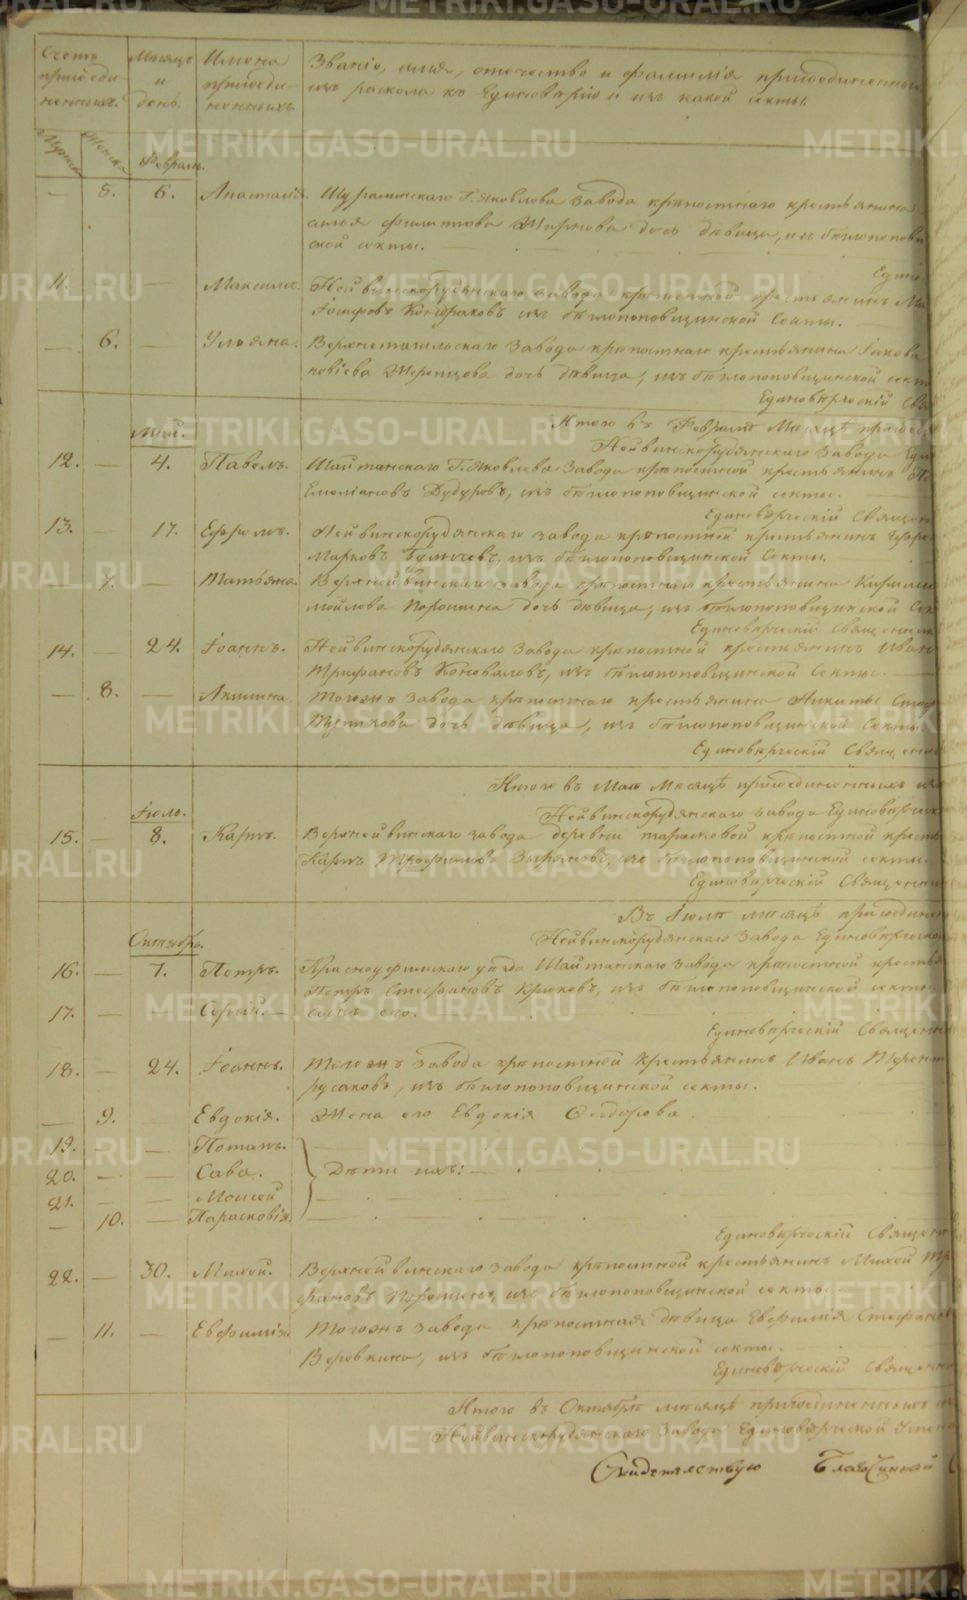 Счетъ присоединенныхъ.
Мужеска Женска
Месяцъ и день.
Имена присоединенныхъ
Званіе, имя, отечество и фамилія присоединенныхъ
изъ раскола къ Единоверію и изъ какой секты.
Февраль.
— 5. 6. Анастасія. Шуралинскаго Г. Яковлева завода крепостнаго крестьянина
Филиппова Жирнова дочь девица, изъ беглопоповщин
ской секты.
Един
11. — — Максимъ. Нейвинскорудянскаго завода крепостной крестьянинъ Ма
Іосифовъ Кондраковъ изъ беглопоповщинской Секты.
— 6. — Ульяна. Верхнетагильскаго завода крепостнаго крестьянина Іакова
девица, изъ беглопоповщинской сект
Единоверческій Свя
Итого въ Феврале Месяце присоед
Нейвинскорудянскаго завода Един
Май.
12. — 4. Павелъ. Шайтанскаго Г. Яковлева завода крепостной крестьянинъ Па
Емельяновъ изъ беглопоповщинской секты.
Единоверческій Священ
13. — 17. Ефремъ. Нейвинскорудянскаго завода крепостной крестьянинъ Ефре
Марковъ изъ беглопоповщинской Секты.
— 7. — Татьяна. Верхнейвинскаго завода крепостнаго крестьянина Кирилы
мойлова Порошина дочь девица, изъ беглопоповщинской Сек
Единоверческій Священник
14. — 24. Іоаннъ. Нейвинскорудянскаго завода крепостной крестьянинъ Иван
Трифановъ Коноваловъ, изъ беглопоповщинской Секты.
— 8. — Акилина. Тогожъ завода крепостнаго крестьянина Никиты
дочь девица, изъ беглопоповщинской Секты
Единоверческій Священ
Итого въ Мае Месяце присоединенныхъ
Нейвинскорудянскаго завода Единоверческ
Іюль.
15. — 8. Карпъ. Верхнейвинскаго завода деревни Тарасковой крепостной крест
Карпъ Трофимовъ Зыряновъ, изъ беглопоповщинской секты.
Единоверческій Священник
Въ Іюле месяце присоедин
Нейвинскорудянскаго завода Единоверческой
Октябрь.
16. — 7. Петръ. Красноуфимскаго уезда Шайтанскаго завода крепостной крестья
Петръ Стефановъ Крюковъ, изъ беглопоповщинской секты.
17. — — Сергій. — сынъ его.
Единоверческій Священни
18. — 24. Іоаннъ. Тогожъ завода крепостной Крестьянинъ Иванъ Терент
Русаковъ, изъ беглопоповщинской секты.
— 9. Евдокія. Жена его Евдокія Феодорова
19. — — Потапъ.
20. — — Сава. Дети ихъ: —
21. — — Моисей
— 10. — Парасковія.
Единоверческій Священн
22. — 30. Михей. Верхнейвинскаго завода крепостной крестьянинъ Михей Тр
фановъ Порошинъ, изъ беглопоповщинской секты
— 11. — Евфимія Тогожъ завода крепостная девица Евфимія Стефано
Веровкина, изъ беглопоповщинской секты.
Единоверческій Священн
Итого въ Октябре месяце присоединенныхъ
Нейвинскорудянскаго завода Единоверческой
Свидетельствую Благочинный
METRIKI.GASO-URAL.RU